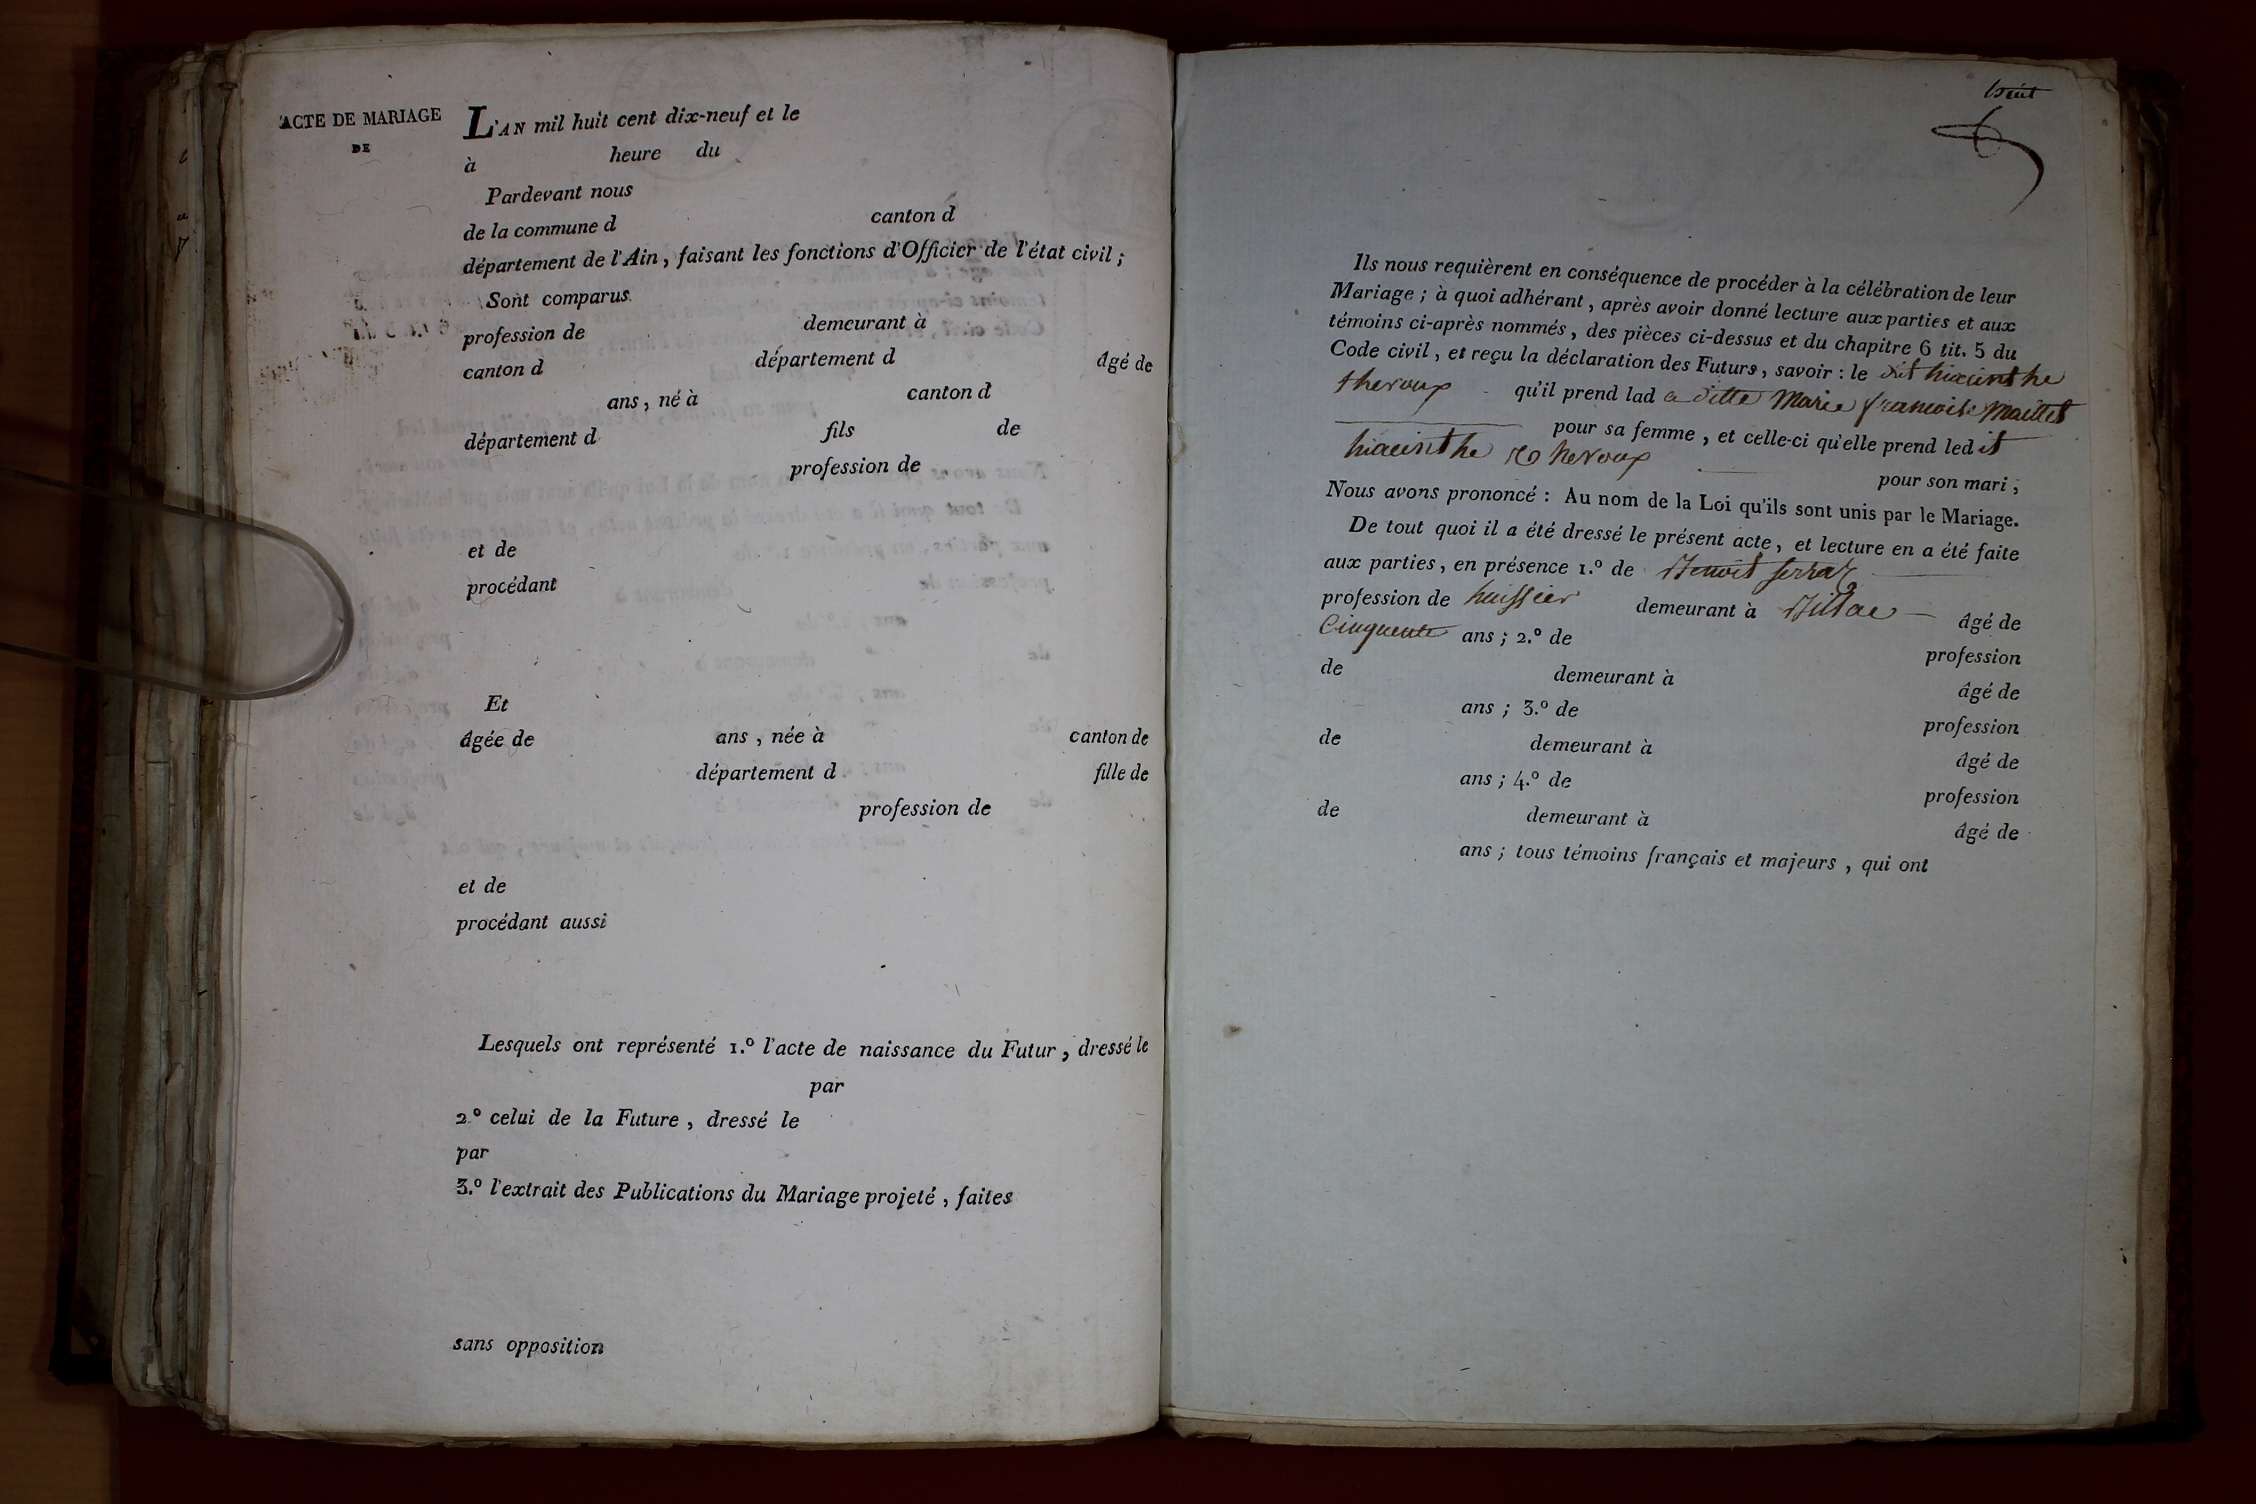 ACTE DE MARIAGE
DE
L'AN mil huit cent dix-neuf et le
à heure du
Pardevant nous
de la commune d canton d
département de l'Ain, faisant les fonctions d'Officier de l'état civil ;
Sont comparus
profession de demeurant à
canton d département d âgé de
ans, né à canton d
département d fils de
profession de
et de
procédant
Et
âgée de ans, née à canton de
département d fille de
profession de
et de
procédant aussi
Lesquels ont représenté 1.º l'acte de naissance du Futur, dressé le
par
2.º celui de la Future, dressé le
par
3.º l'extrait des Publications du Mariage projeté, faites
sans opposition
huit
Ils nous requièrent en conséquence de procéder à la célébration de leur
Mariage ; à quoi adhérant, après avoir donné lecture aux parties et aux
témoins ci-après nommés, des pièces ci-dessus et du chapitre 6 tit. 5 du
Code civil, et reçu la déclaration des Futurs, savoir : le dit hiacinthe
theroux qu'il prend lad a ditte Marie francoise Maillet
pour sa femme, et celle-ci qu'elle prend led it
hiacinthe theroux pour son mari ;
Nous avons prononcé : Au nom de la Loi qu'ils sont unis par le Mariage.
De tout quoi il a été dressé le présent acte, et lecture en a été faite
aux parties, en présence 1.º de Benoit
profession de huissier demeurant à âgé de
Cinquente ans ; 2.º de profession
de demeurant à âgé de
ans ; 3.º de profession
de demeurant à âgé de
ans ; 4.º de profession
de demeurant à âgé de
ans ; tous témoins français et majeurs, qui ont